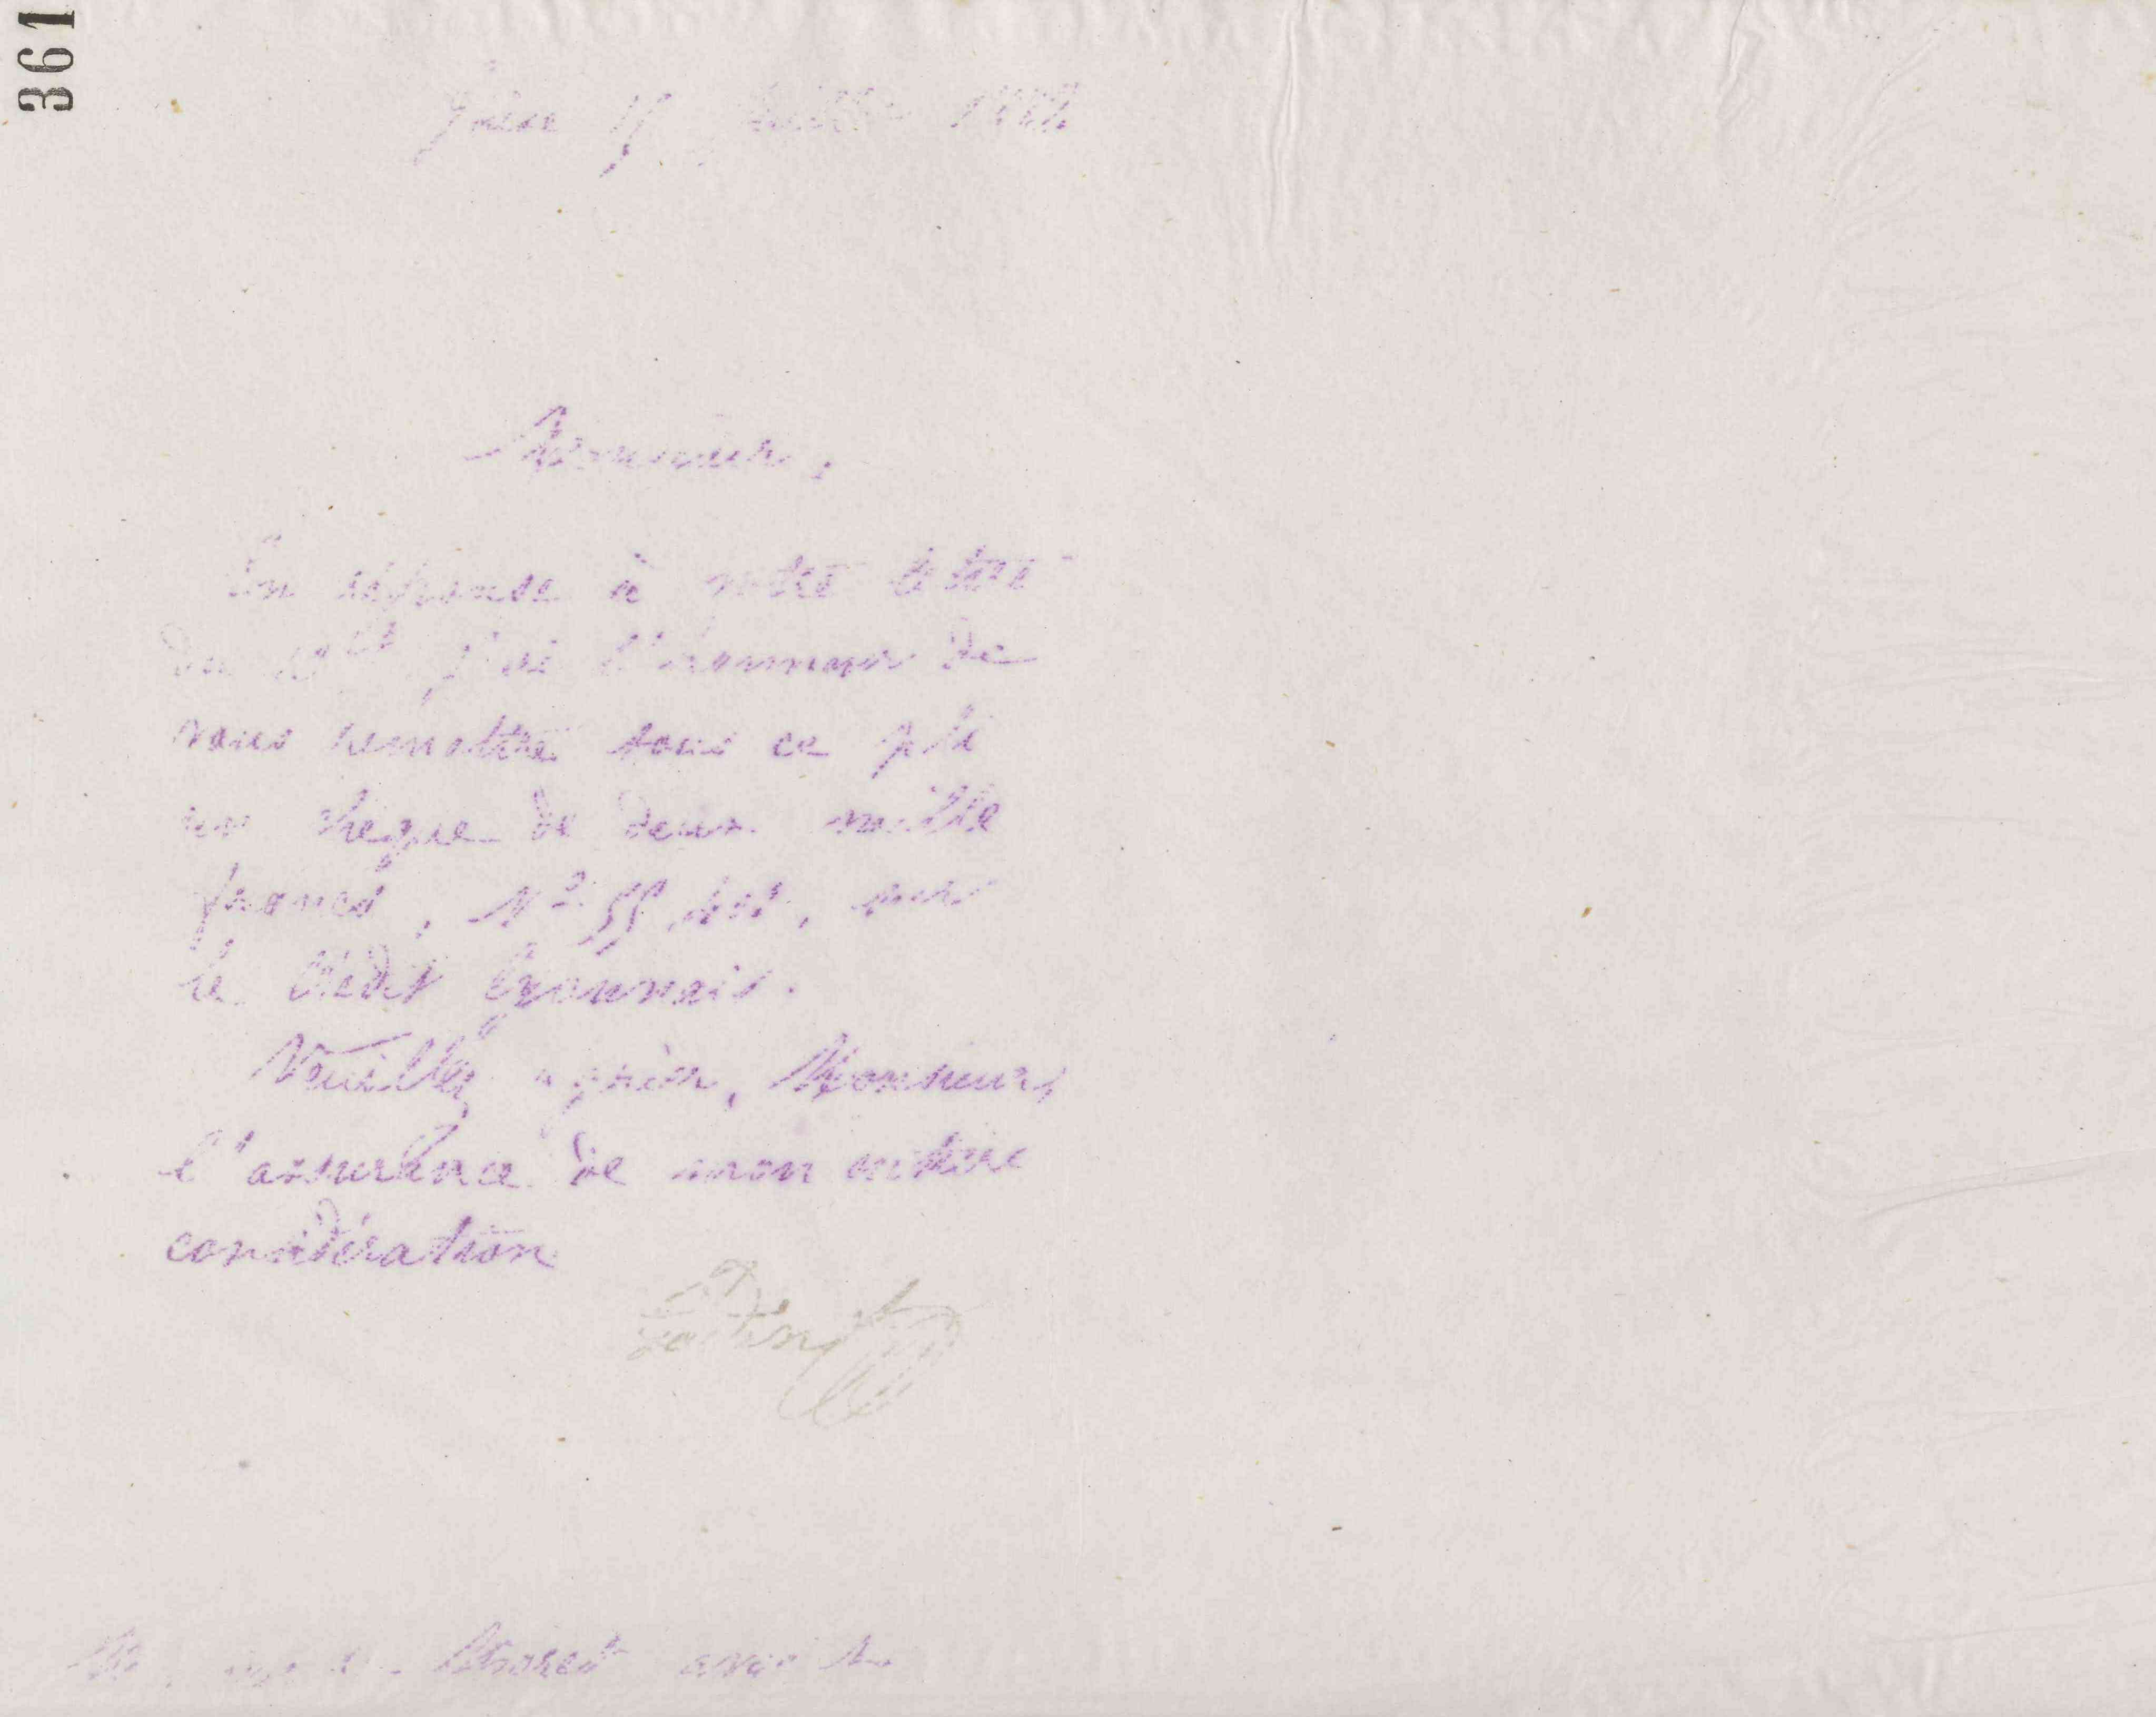 361
Guise 15 Juillet 1882
Monsieur,
En réponse à votre lettre
du j'ai l'honneur de
vous remettre sous ce pli
un chèque de deux mille
francs, N° 55, sur
le Crédit Lyonnais.
Veuillez agréer, Monsieur,
l'assurance de mon entière
considération
Godin
avoué